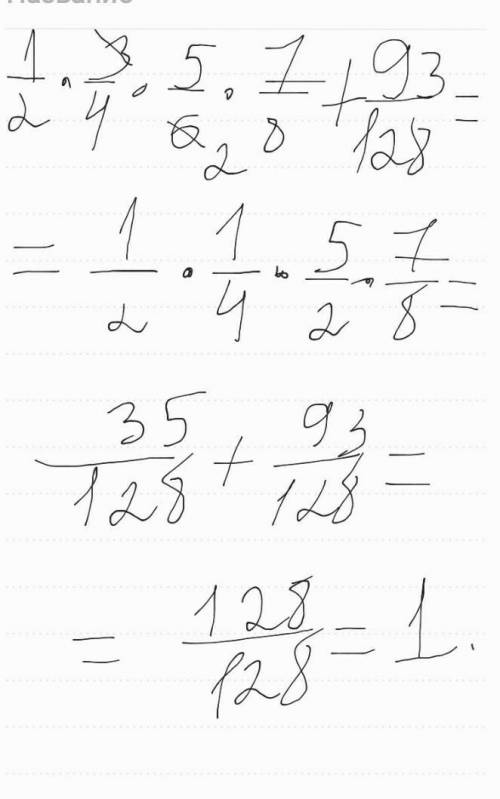 Название
1/2 · 3/4 · 5/6 2 · 7/8 + 93/128 =
= 1/2 · 1/4 · 5/2 · 7/8 =
35/128 + 93/128 =
= 128/128 = 1.